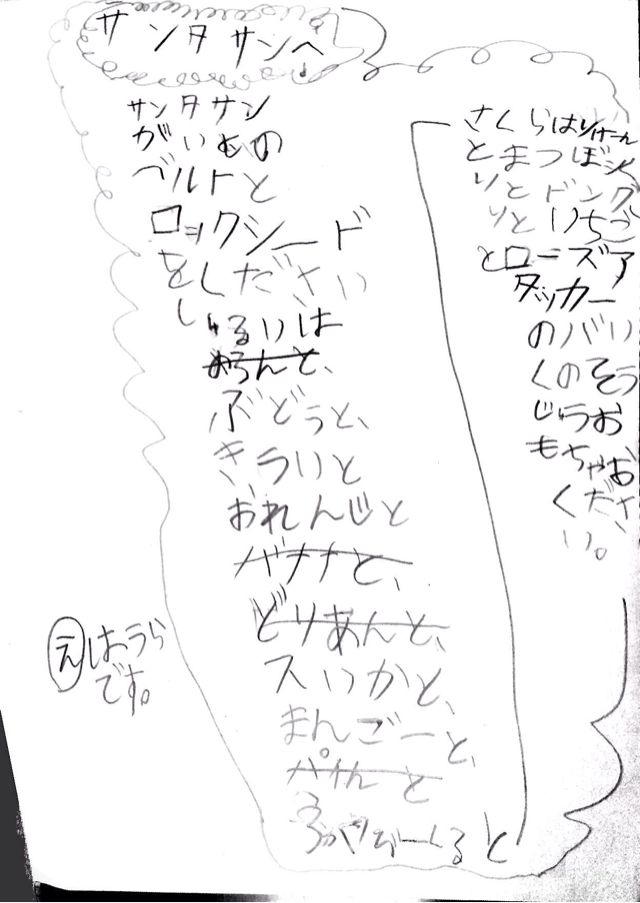 サンタサンへ
サンタサン
がいむの
ベルトと
ロックシード
をください
しゅるいは
めろんと、
ぶどうと、
きういと
おれんじと
バナナと、
どりあんと、
スいかと、
まんごーと、
パいんと
と
さくらは
とまつぼっく
りとドング
りといちご
とローズア
タッカー
のバい
くのそう
じゅうお
もちゃお
くださ
い。
えはうら
です。